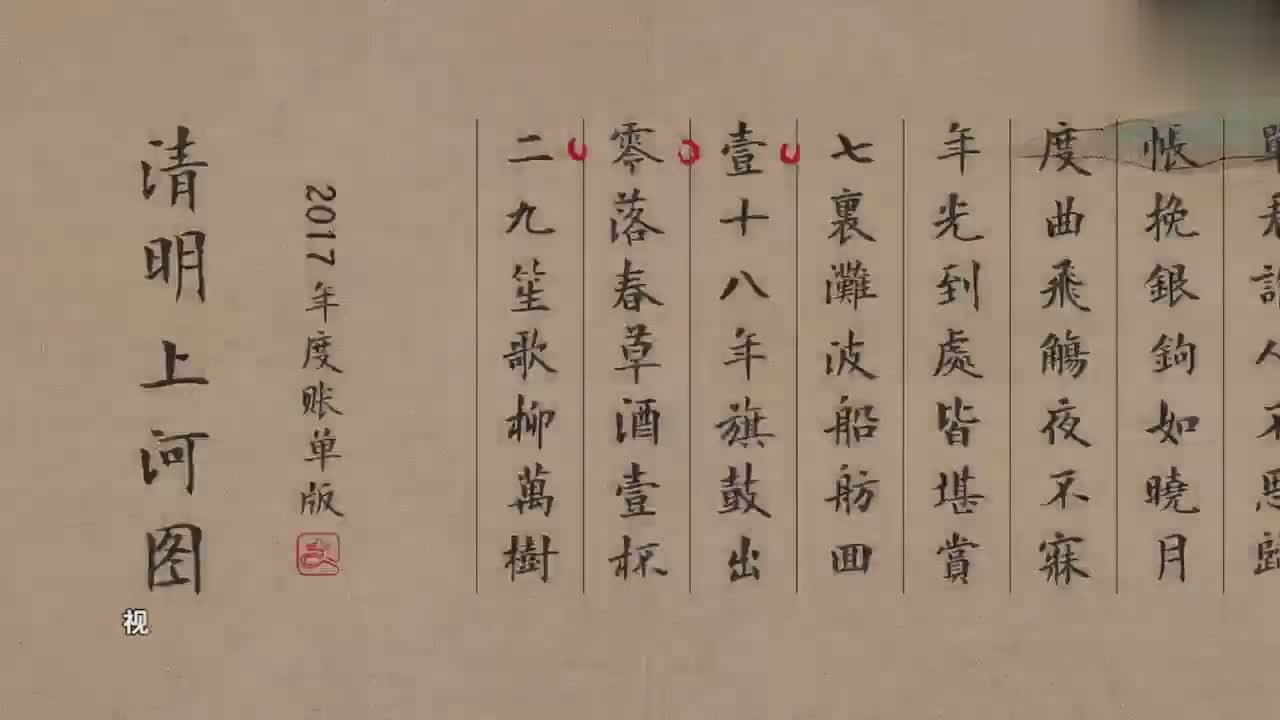 清明上河图
2017年度账单版
二九笙歌柳萬樹
零落春草酒壹杯
壹十八年旗鼓出
七裏灘波船舫囬
年光到處皆堪賞
度曲飛觴夜不寐
帳挽銀鉤如曉月
视